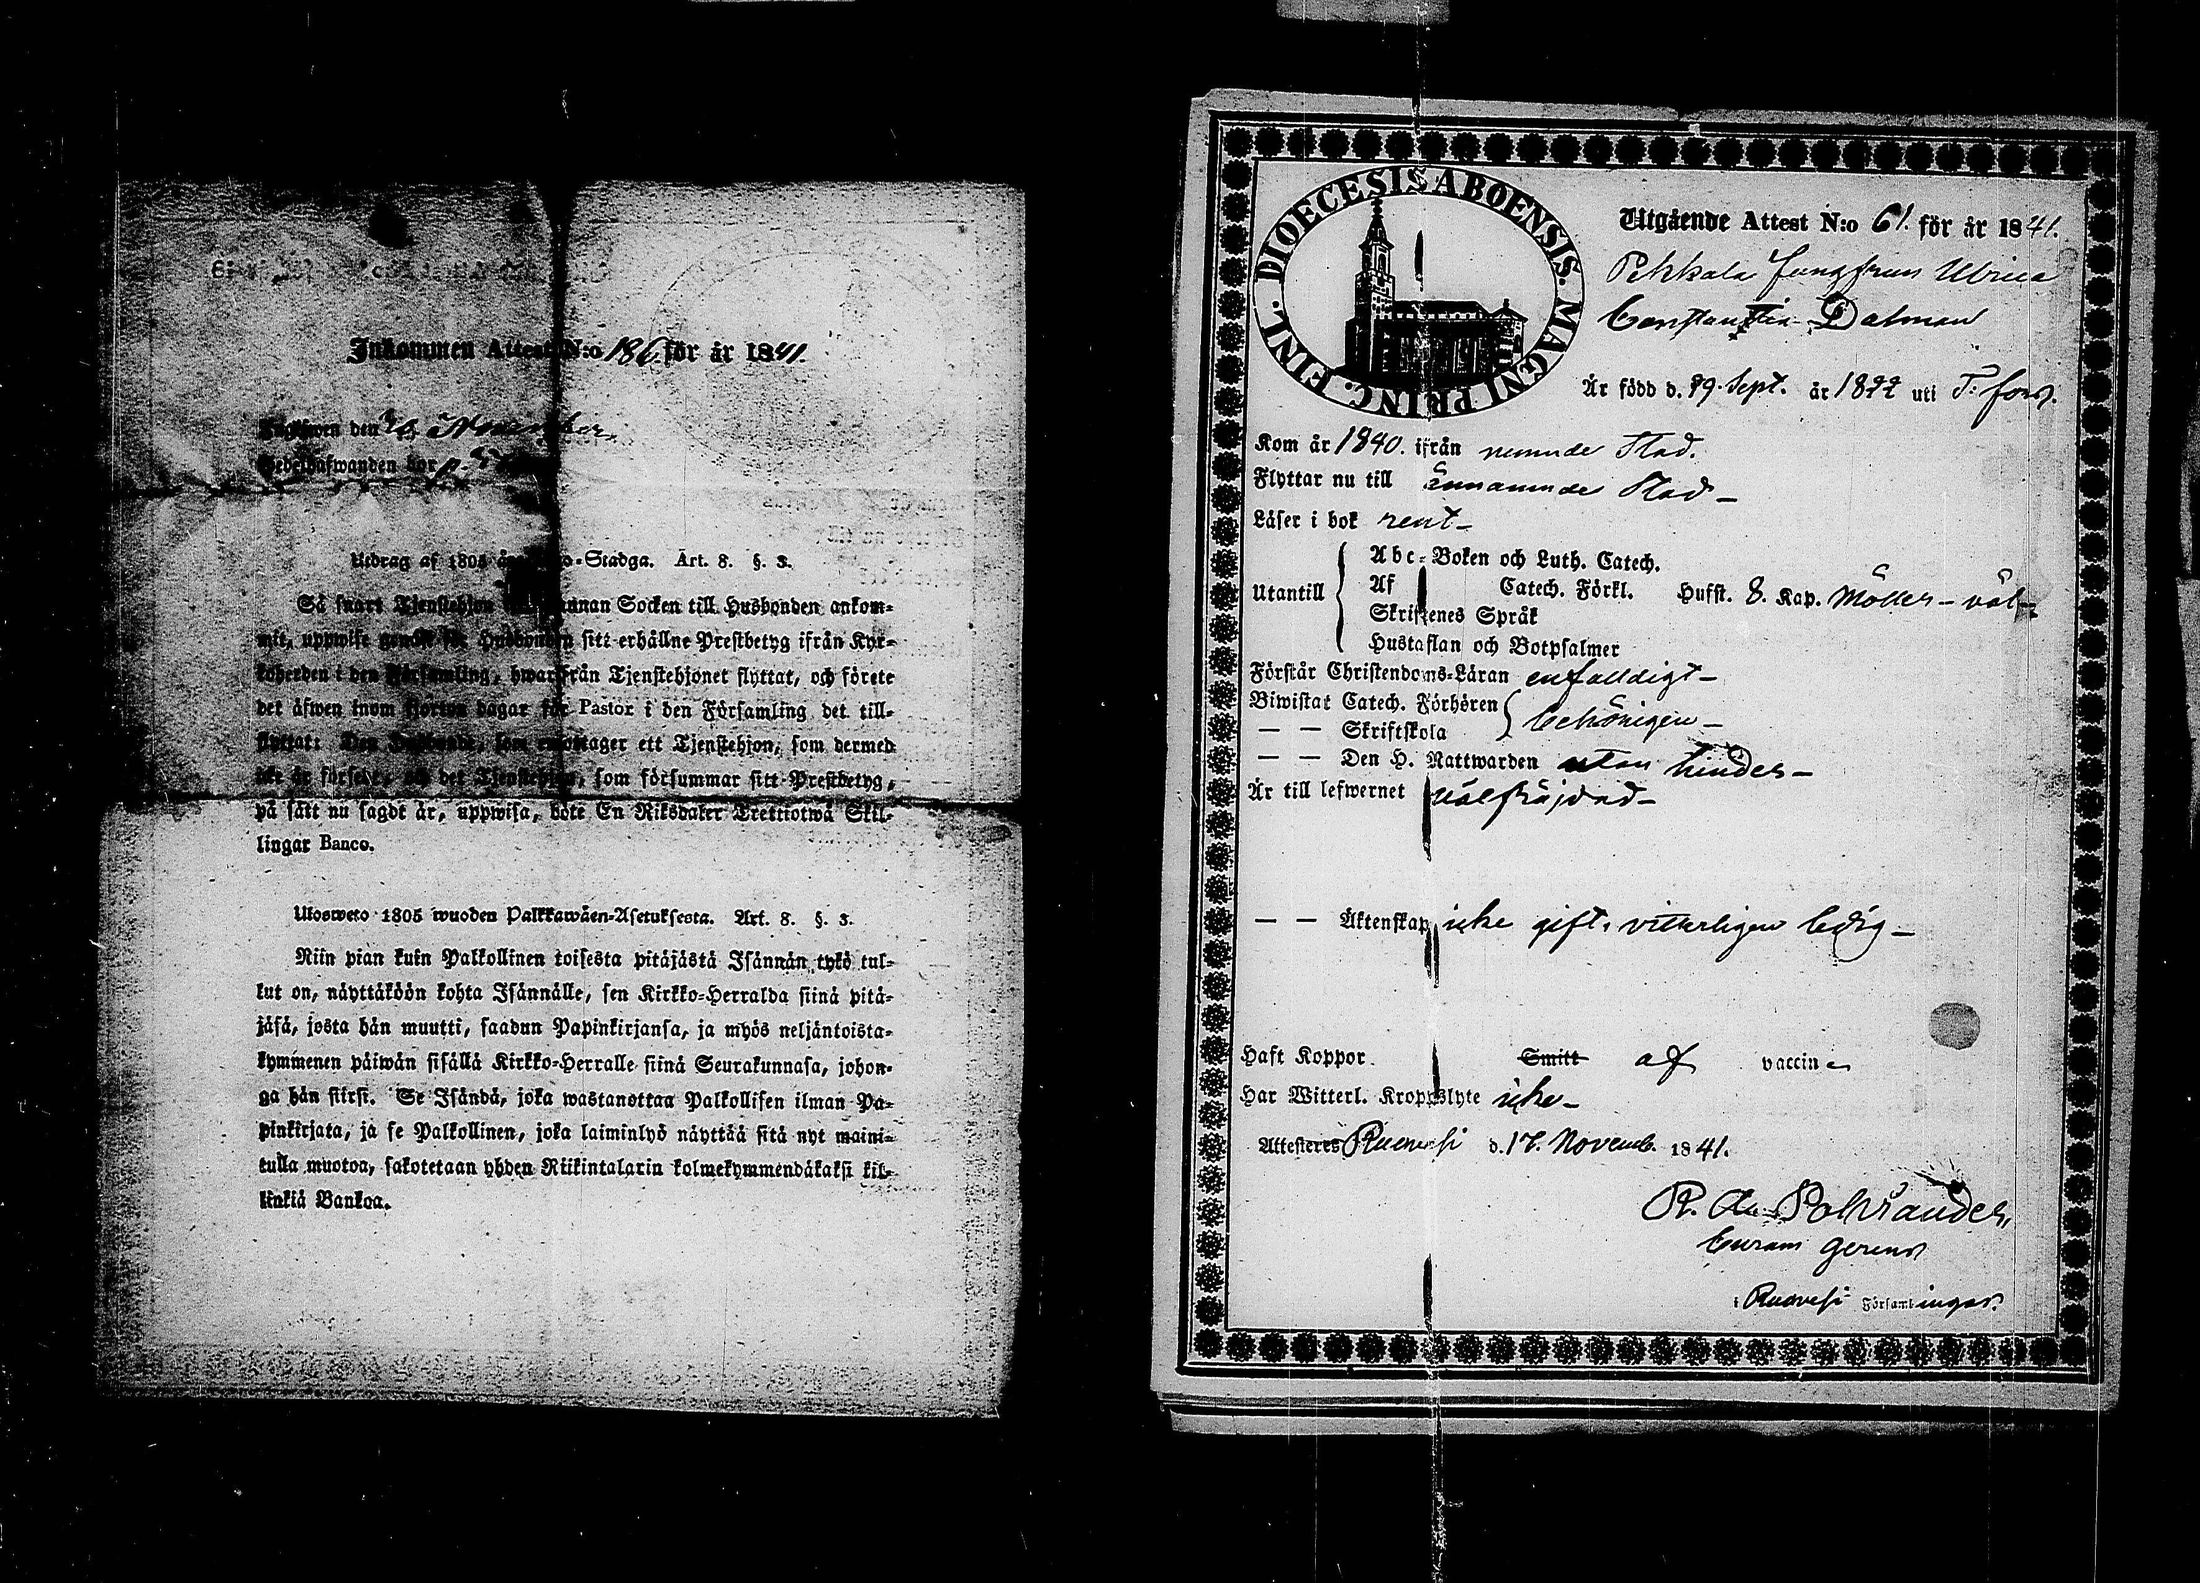 Inkommen Attest N:o 186 för år 1841.
den 20 November
Utdrag af 1805 års -Stadga. Art. 8. §. 3.
Så snart Tjenstehjon annan Socken till Husbonden ankom-
mit, uppwise genast för Husbonden sitt erhållne Prestbetyg ifrån Kyr-
koherden i den Församling, hwarifrån Tjenstehjonet flyttat, och förete
det äfwen inom fjorton dagar för Pastor i den Församling det till-
flyttat: Den Husbonde, som emottager ett Tjenstehjon, som dermed
icke är försedt, och det Tjenstehjon, som försummar sitt Prestbetyg,
på sätt nu sagdt är, uppwisa, böte En Riksdaler Trettiotwå Skil-
lingar Banco.
Ulosweto 1805 wuoden Palkkawäen-Asetuksesta. Art. 8. §. 3.
Niin pian kuin Palkollinen toisesta pitäjästä Isännän tykö tul-
lut on, näyttäköön kohta Isännälle, sen Kirkko-Herralda siinä pitä-
jäsä, josta hän muutti, saadun Papinkirjansa, ja myös neljäntoista-
kymmenen päiwän sisällä Kirkko-Herralle siinä Seurakunnasa, johon-
ga hän siirsi. Se Isändä, joka wastanottaa Palkollisen ilman Pa-
pinkirjata, ja se Palkollinen, joka laiminlyö näyttää sitä nyt maini-
tulla muotoa, sakotetaan yhden Riikintalarin kolmekymmendäkaksi kil-
linkiä Bankoa.
DIOECESIS ABOENSIS. MAGNI PRINC. FINL.
Utgående Attest N:o 61. för år 1841.
Pekkala Jungfrun Ulrica
Constantia Dalman
Är född d. 29. Sept. år 1822 uti T:fors.
Kom år 1840. ifrån nemnde Stad.
Flyttar nu till ännämnde Stad
Läser i bok rent
Abc-Boken och Luth. Catech.
Utantill Af Catech. Förkl. Hufst. 8. Kap. Möller - väl
Skriftenes Språk
Hustaflan och Botpsalmer
Förstår Christendoms-Läran enfaldigt
Biwistat Catech. Förhören
behörigen
— — Skriftskola
— — Den H. Nattwarden utan hinder
Är till lefwernet välfräjdad
— — Äktenskap icke gift, vitterligen ledig
Haft Koppor Smitt af vaccine
Har Witterl. Kroppslyte icke
Attesteres Ruovesi d. 17. Novemb. 1841.
Polviander,
Curam gerens
i Ruovesi Församlingar.